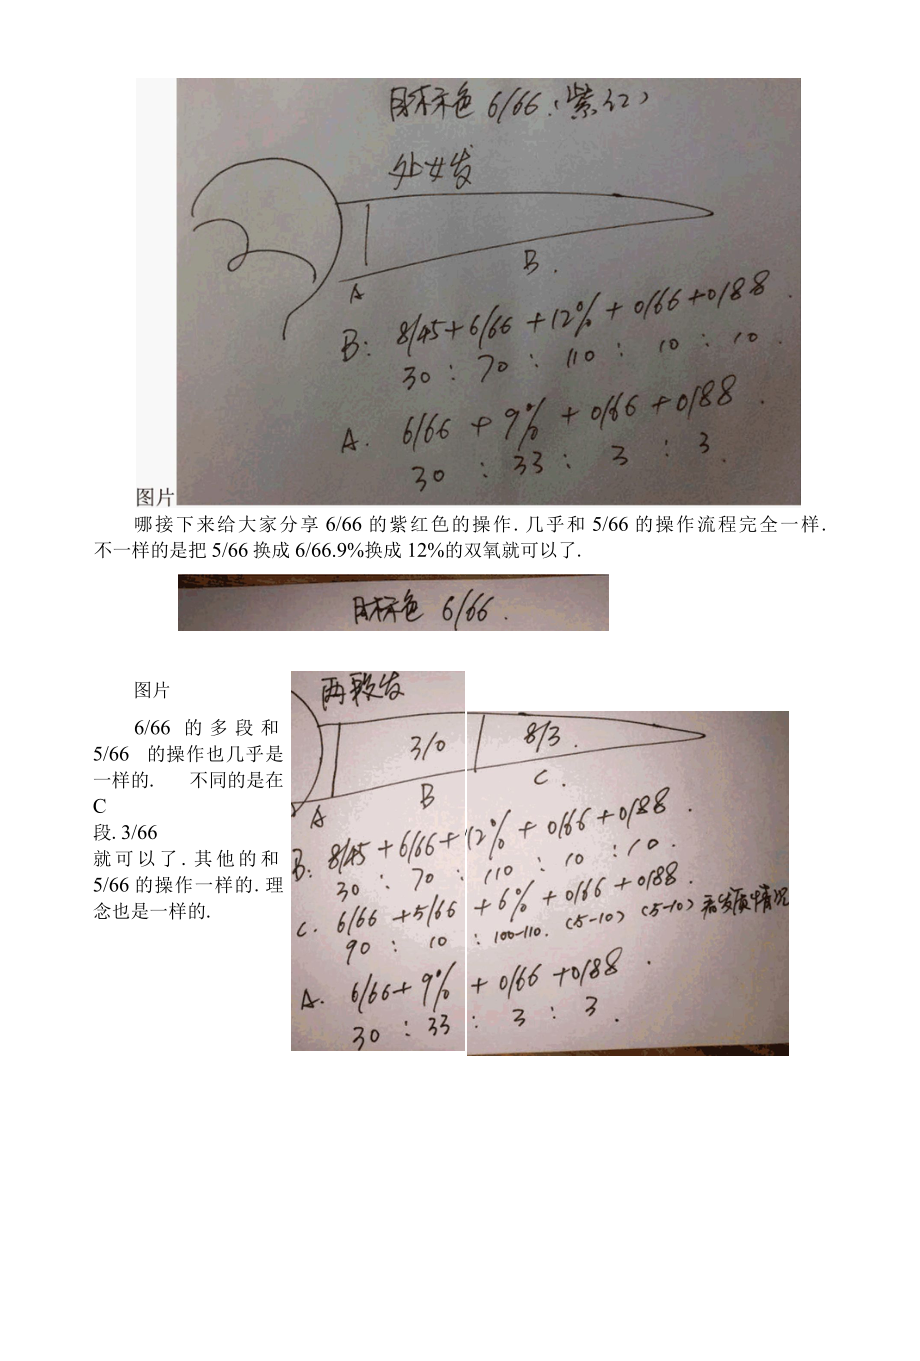 目标色 6/66.(紫红)
处女发
B.
A
B: 8/45+6/66+12%+0/66+0/88.
30 : 70 : 110 : 10 : 10.
A. 6/66+9%+0/66+0/88.
30 : 33 : 3 : 3.
图片
哪接下来给大家分享 6/66 的紫红色的操作. 几乎和 5/66 的操作流程完全一样.
不一样的是把 5/66 换成 6/66.9%换成 12%的双氧就可以了.
目标色 6/66.
图片
6/66 的多段和
5/66 的操作也几乎是
一样的. 不同的是在
C
段. 3/66
就可以了. 其他的和
5/66 的操作一样的. 理
念也是一样的.
两段发
3/0 8/3.
A B C.
B: 8/45+6/66+12%+0/66+0/88.
30 : 70 : 110 : 10 : 10.
C. 6/66+5/66+6%+0/66+0/88.
90 : 10 : 100-110. (5-10) (5-10) 看发质情况
A. 6/66+9%+0/66+0/88.
30 : 33 : 3 : 3.